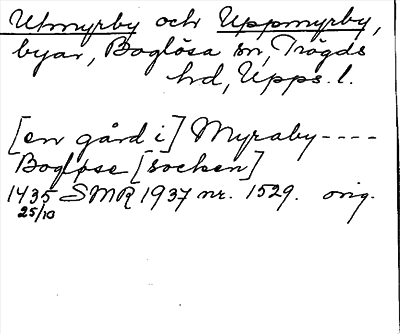 Utmyrby och Uppmyrby,
byar, Boglösa sn, Trögds
hd, Upps. l.
[en gård i] Myraby----
Bogløse [socken]
1435 SMR 1937 nr. 1529. orig.
25/10